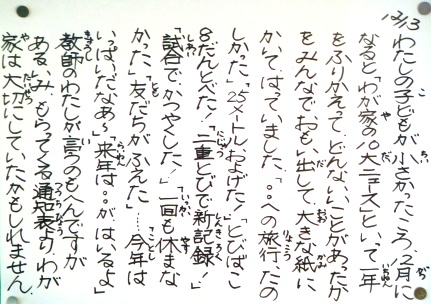 12/13
わたしの子どもが小さかったころ、12月に
なると「わが家の10大ニュース」といって一年
をふりかえって、どんないいことがあったか
をみんなでおもい出して、大きな紙に
かいてはっていました。「○○への旅行たの
しかった」「25メートルおよげた!」「とびばこ
8だんとべた!」「二重とびで新記録!」
「試合でかつやくした!」「一回も休まな
かった」「友だちがふえた」……今年は
いっぱいだなあ〜」「来年は○○がはいるよ」
教師のわたしが言うのもへんですが
ある、いみ、もらってくる通知表より、わが
家は大切にしていたかもしれません。